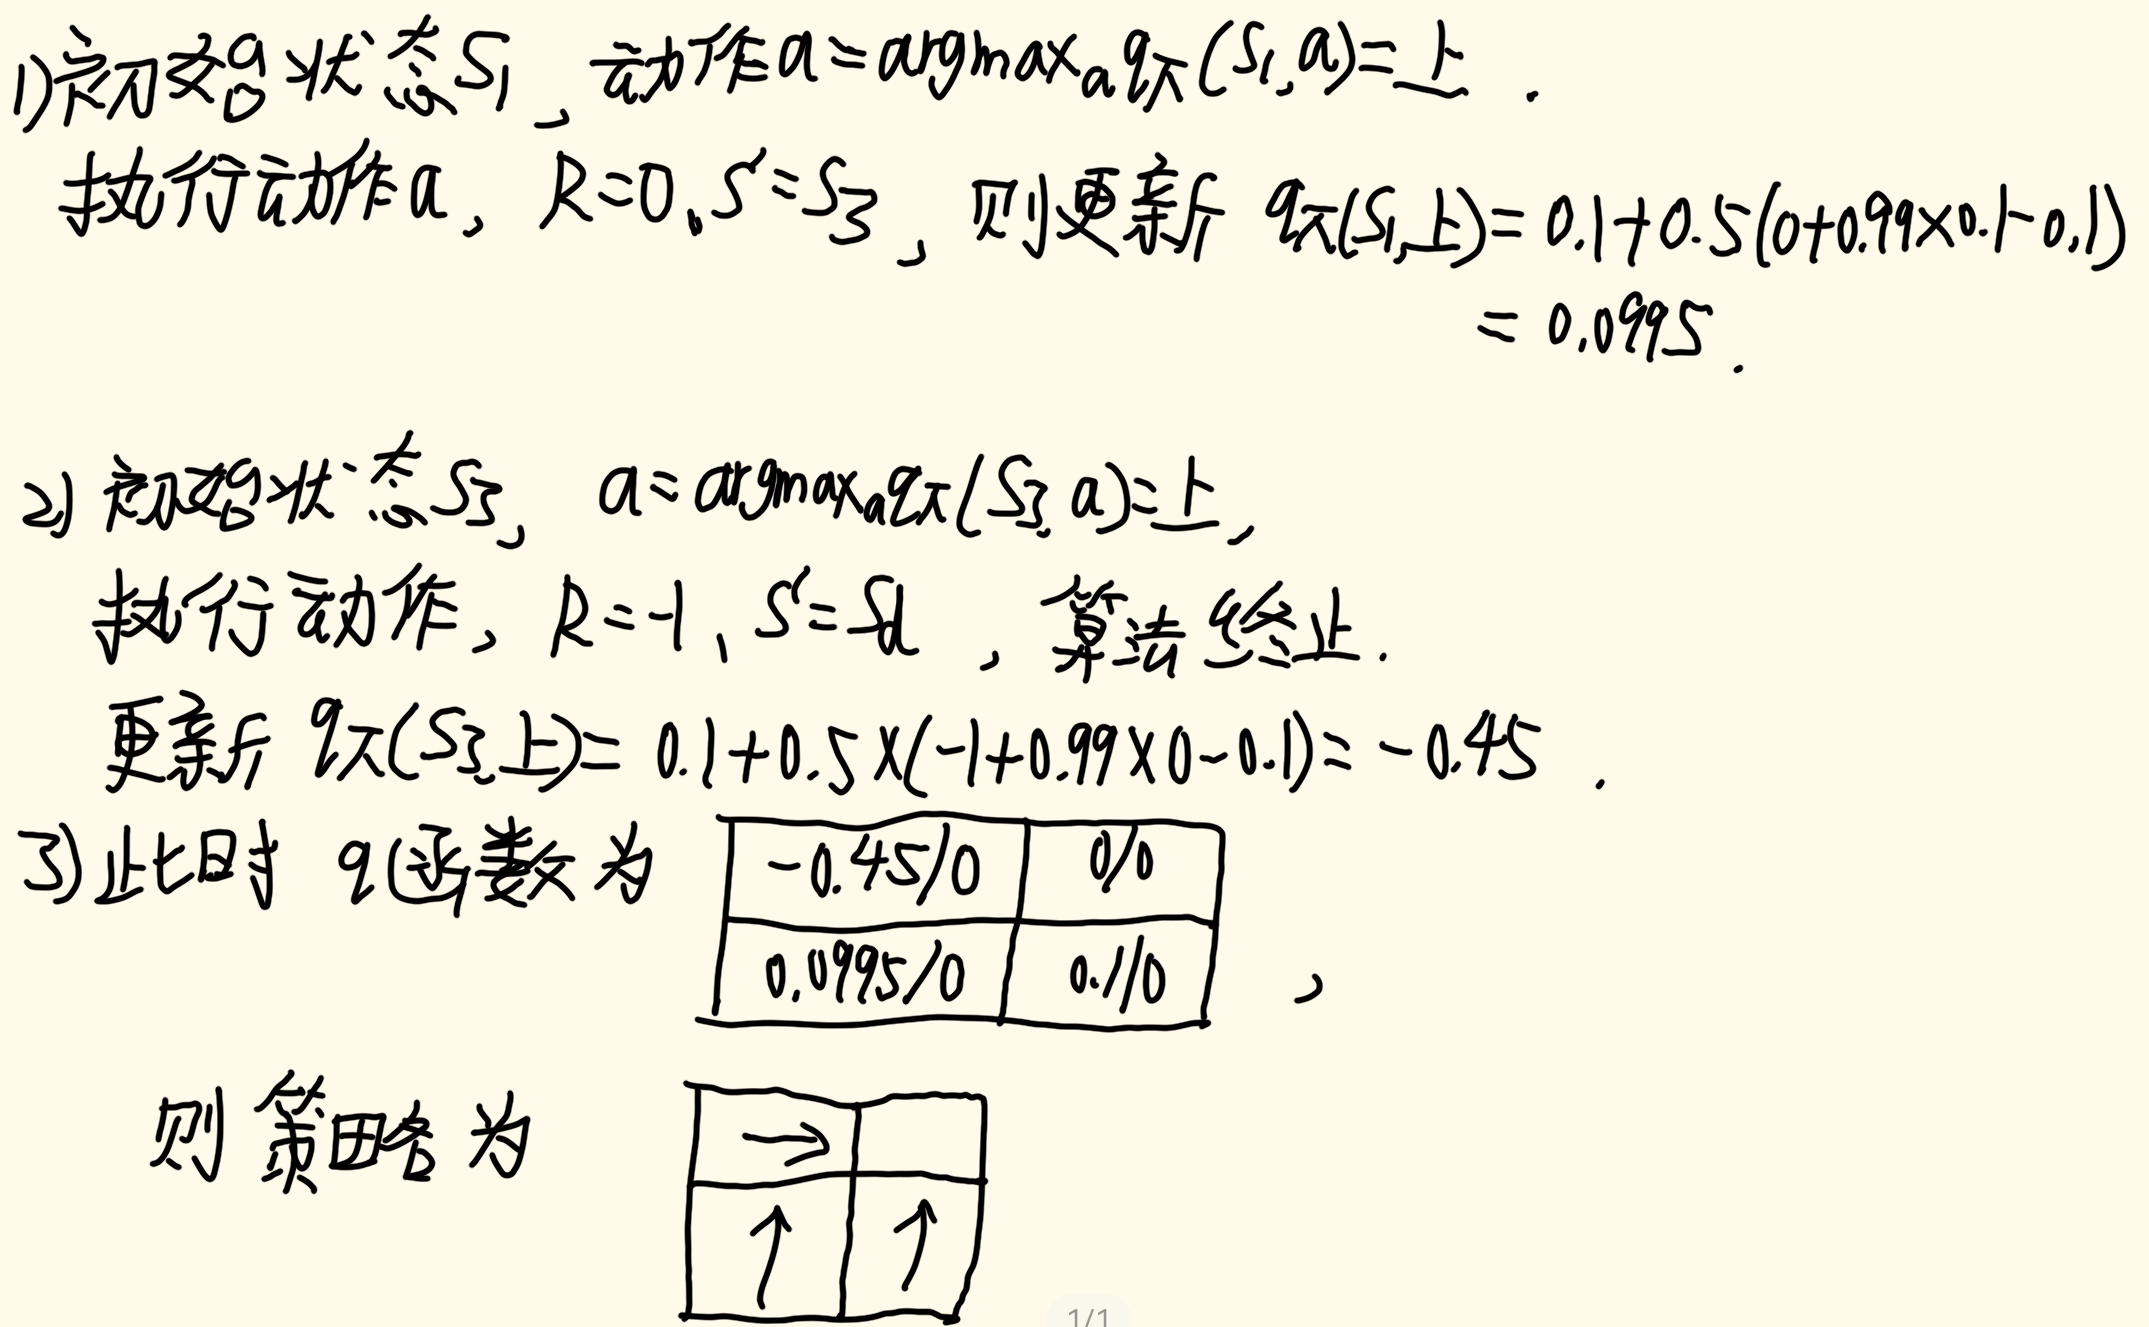 1) 初始状态S₁, 动作a=argmaxₐqπ(S₁,a)=上.
执行动作a, R=0, S'=S₃, 则更新 qπ(S₁,上)=0.1+0.5(0+0.99×0.1-0.1)
=0.0995.
2) 初始状态S₃, a=argmaxₐqπ(S₃,a)=上,
执行动作, R=-1, S'=Sd, 算法终止.
更新 qπ(S₃,上)=0.1+0.5×(-1+0.99×0-0.1)=-0.45.
3) 此时 q函数为
-0.45/0 0/0
0.0995/0 0.1/0 ,
则策略为
→
↑ ↑
1/1